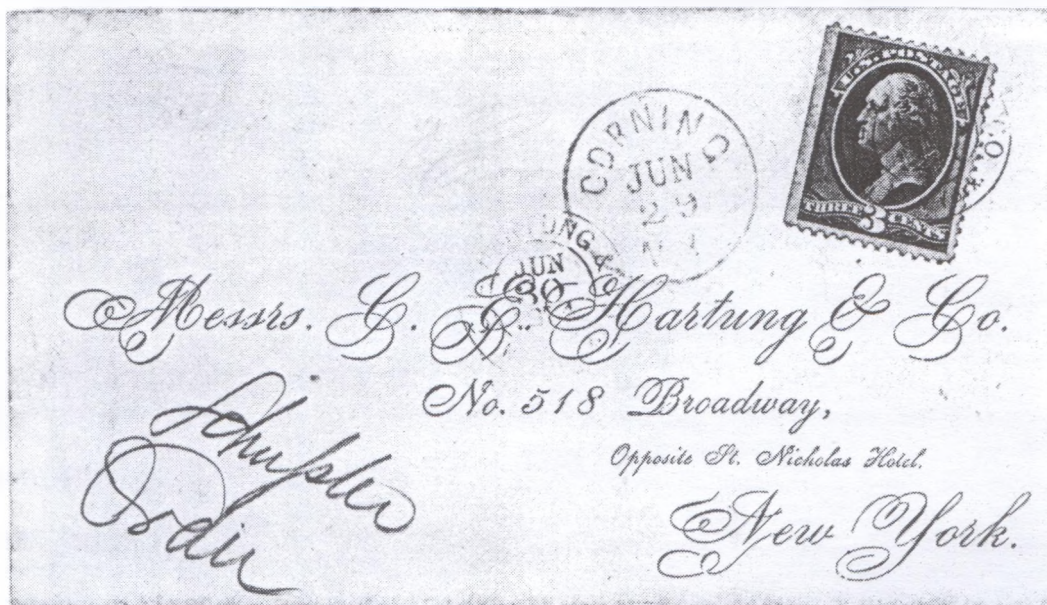 U.S. POSTAGE
THREE 3 CENTS
CORNING
JUN
29
N.Y.
TUNG &
JUN
30
Messrs. G. L. Hartung & Co.
No. 518 Broadway,
Opposite St. Nicholas Hotel.
New York.